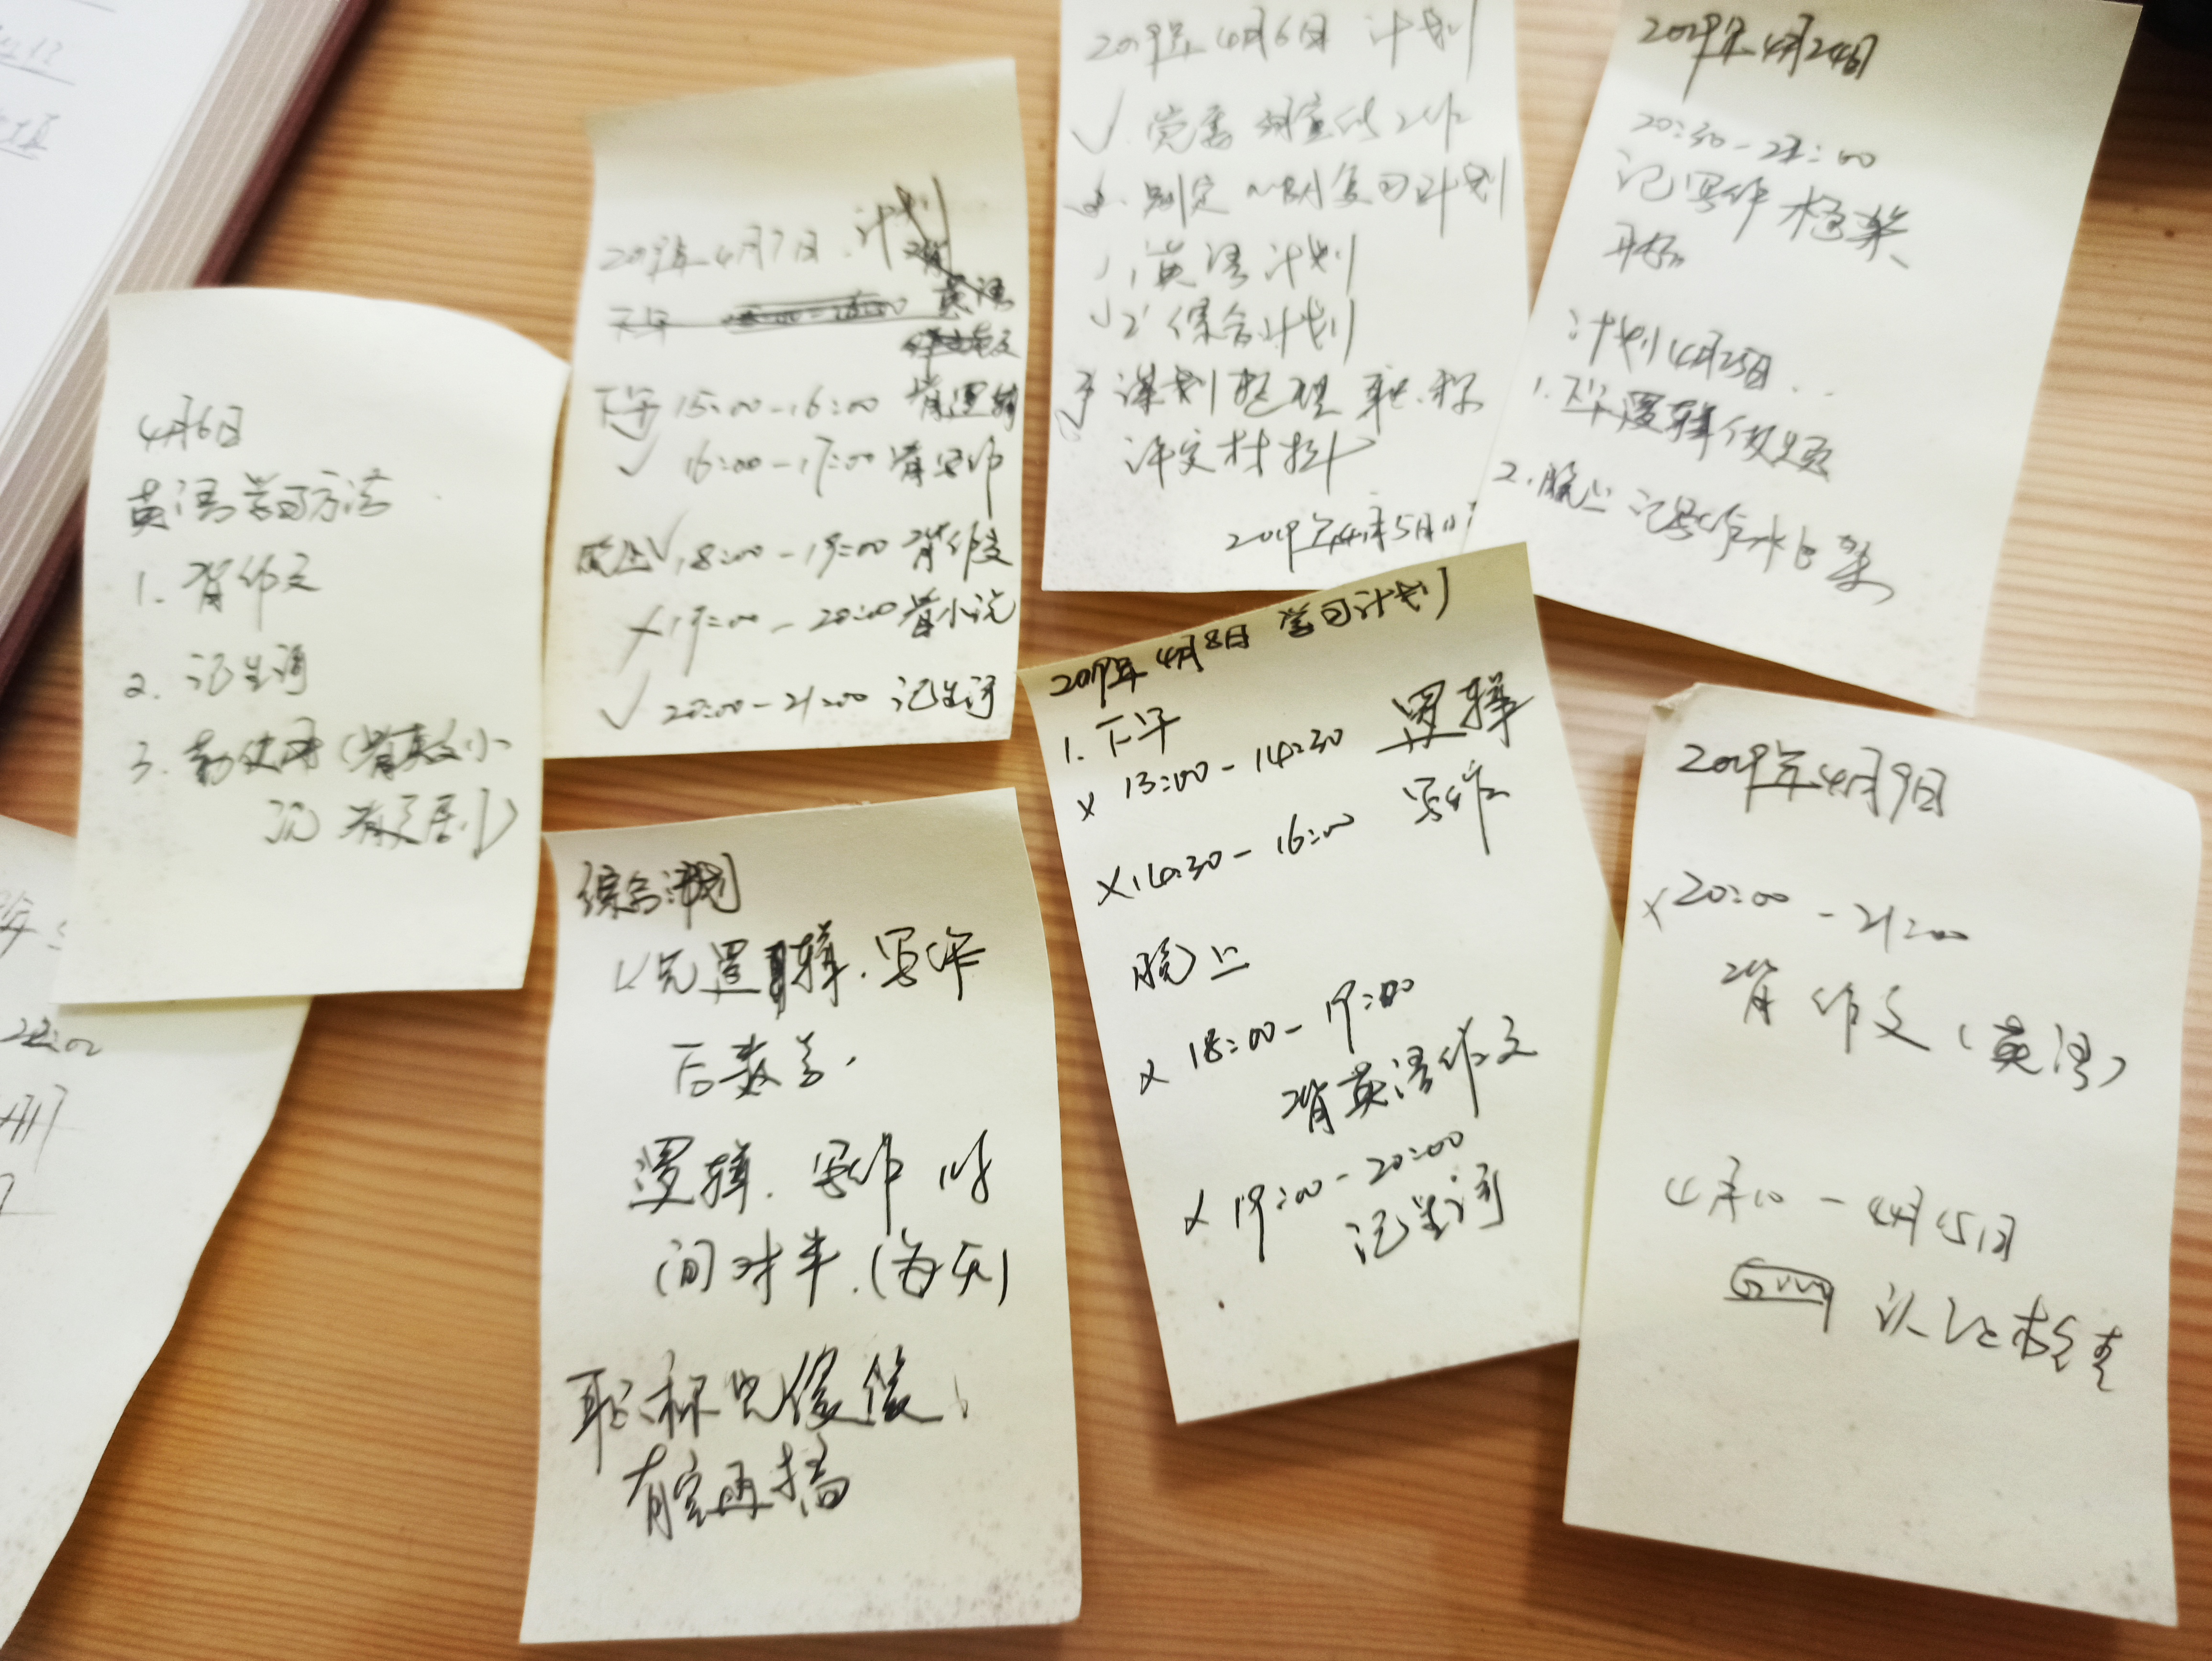 4月6日
英语学习方法
1. 背作文
2. 记生词
3. 勤使用(背英文小
说 背文剧)
2019年4月7日.计划
下午 英语
下午 15:00-16:00 背逻辑
✓ 16:00-17:00 背写作
晚上✓ 18:00-19:00 背作文
×19:00-20:00 背小说
✓ 20:00-21:00 记生词
2019年4月6日 计划
✓ 党委 工作
2. 制定 复习计划
1、英语计划
✓2、综合计划
3 谋划整理职称
评定材料
2019年4月5日
2019年4月24日
20:30-22:00
记写作框架
开始
计划4月25日..
1.下午逻辑做题
2.晚上 记写作框架
2019年4月8日 学习计划
1. 下午
× 13:00-14:30 逻辑
×14:30-16:00 写作
晚上
× 18:00-19:00
背英语作文
× 19:00-20:00
记生词
2019年4月9日
×20:00-21:00
背作文(英语)
4月10-4月15日
认证检查
综合计划
1.先逻辑.写作
后数学.
逻辑.写作 时
间对半.(每天)
职称先缓缓、
有空再搞
22:00